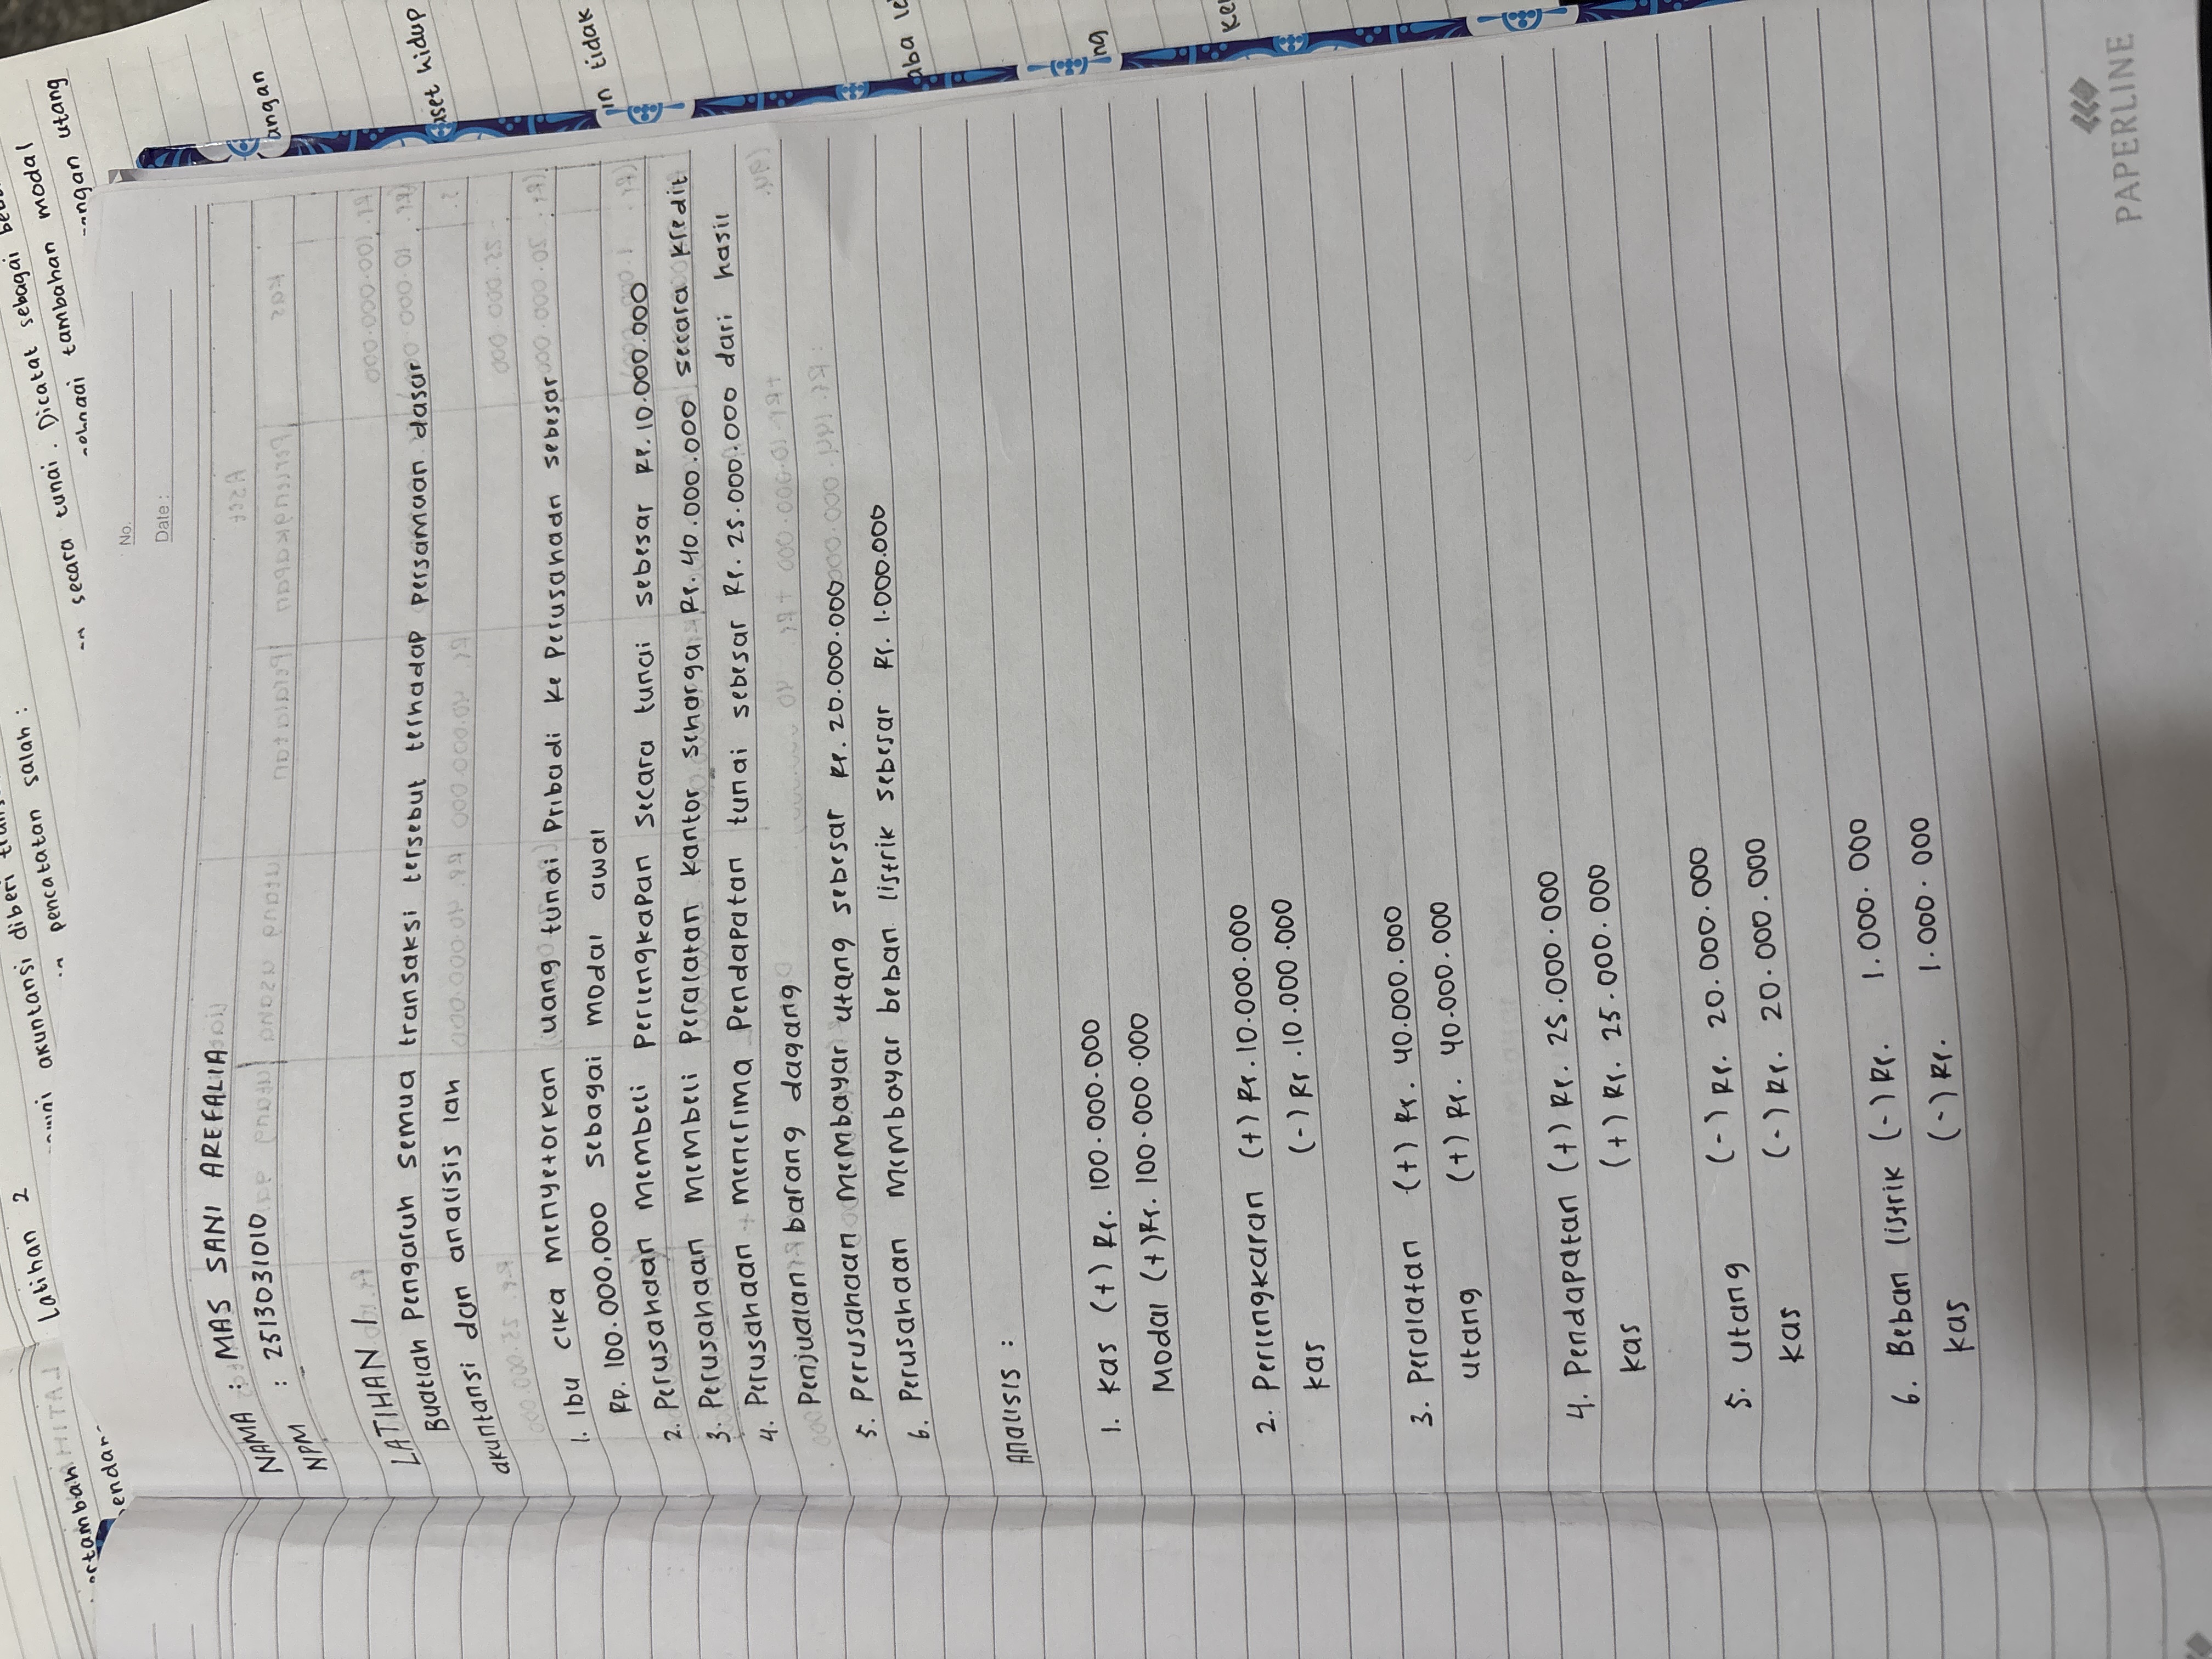 No.
Date:
NAMA : MAS SANI AREFALIA
NPM : 2513031010
LATIHAN 1.
Buatlah Pengaruh semua transaksi tersebut terhadap persamaan dasar
akuntansi dan analisis lah
1. Ibu cika menyetorkan uang tunai Pribadi ke Perusahaan sebesar
Rp. 100.000.000 sebagai modal awal
2. Perusahaan membeli Perlengkapan secara tunai sebesar Rp. 10.000.000
3. Perusahaan membeli Peralatan kantor seharga Rp. 40.000.000 secara kredit
4. Perusahaan menerima Pendapatan tunai sebesar Rp. 25.000.000 dari hasil
Penjualan barang dagang
5. Perusahaan membayar utang sebesar Rp. 20.000.000
6. Perusahaan membayar beban listrik sebesar Rp. 1.000.000
Analisis :
1. Kas (+) Rp. 100.000.000
Modal (+) Rp. 100.000.000
2. Perlengkapan (+) Rp. 10.000.000
kas (-) Rp. 10.000.000
3. Peralatan (+) Rp. 40.000.000
utang (+) Rp. 40.000.000
4. Pendapatan (+) Rp. 25.000.000
kas (+) Rp. 25.000.000
5. Utang (-) Rp. 20.000.000
kas (-) Rp. 20.000.000
6. Beban listrik (-) Rp. 1.000.000
kas (-) Rp. 1.000.000
PAPERLINE
Latihan 2
akuntansi diberi
pencatatan salah :
secara tunai. Dicatat sebagai
tambahan modal
utang
angan
aset hidup
in tidak
ng